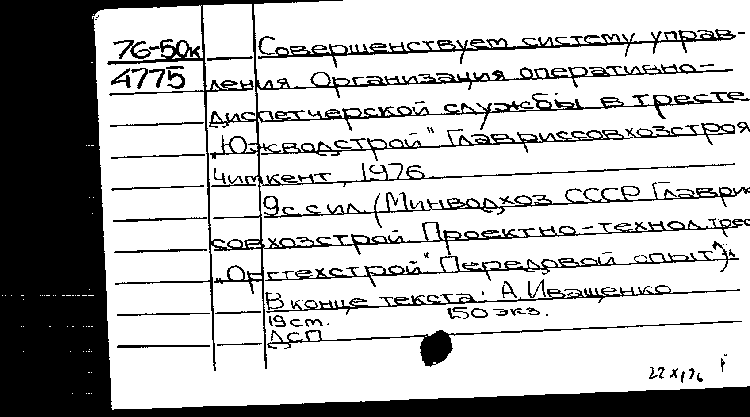 76-50к Совершенствует систему управ-
4775 ления. Организация оперативно-
диспетчерской службы в тресте
„Южводстрой" Главриссовхозстроя
Чимкент, 1976.
9с с ил. (Минводхоз СССР Главрис
совхозстрой Проектно-технол. трес
„Оргтехстрой" Передовой опыт)
В конце текста: А. Иващенко
19 см. 150 экз.
ДСП
22 X 76